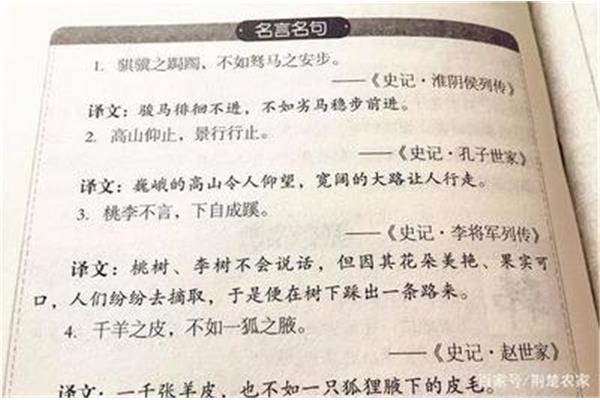 名言名句
1. 骐骥之跼躅，不如驽马之安步。
——《史记·淮阴侯列传》
译文：骏马徘徊不进，不如劣马稳步前进。
2. 高山仰止，景行行止。
——《史记·孔子世家》
译文：巍峨的高山令人仰望，宽阔的大路让人行走。
3. 桃李不言，下自成蹊。
——《史记·李将军列传》
译文：桃树、李树不会说话，但因其花朵美艳、果实可
口，人们纷纷去摘取，于是便在树下踩出一条路来。
4. 千羊之皮，不如一狐之腋。
——《史记·赵世家》
译文：一千张羊皮，也不如一只狐狸腋下的皮毛。
百家号/荆楚农家